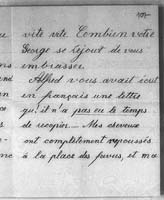 vite vite Combien votre
George se rejout de vous
embrasser.
Alfred vous avait écrit
en français une lettre
qu'il n'a pas eu le temps
de recopier.... Mes cheveux
ont complètement repoussés
à la place des
et ma